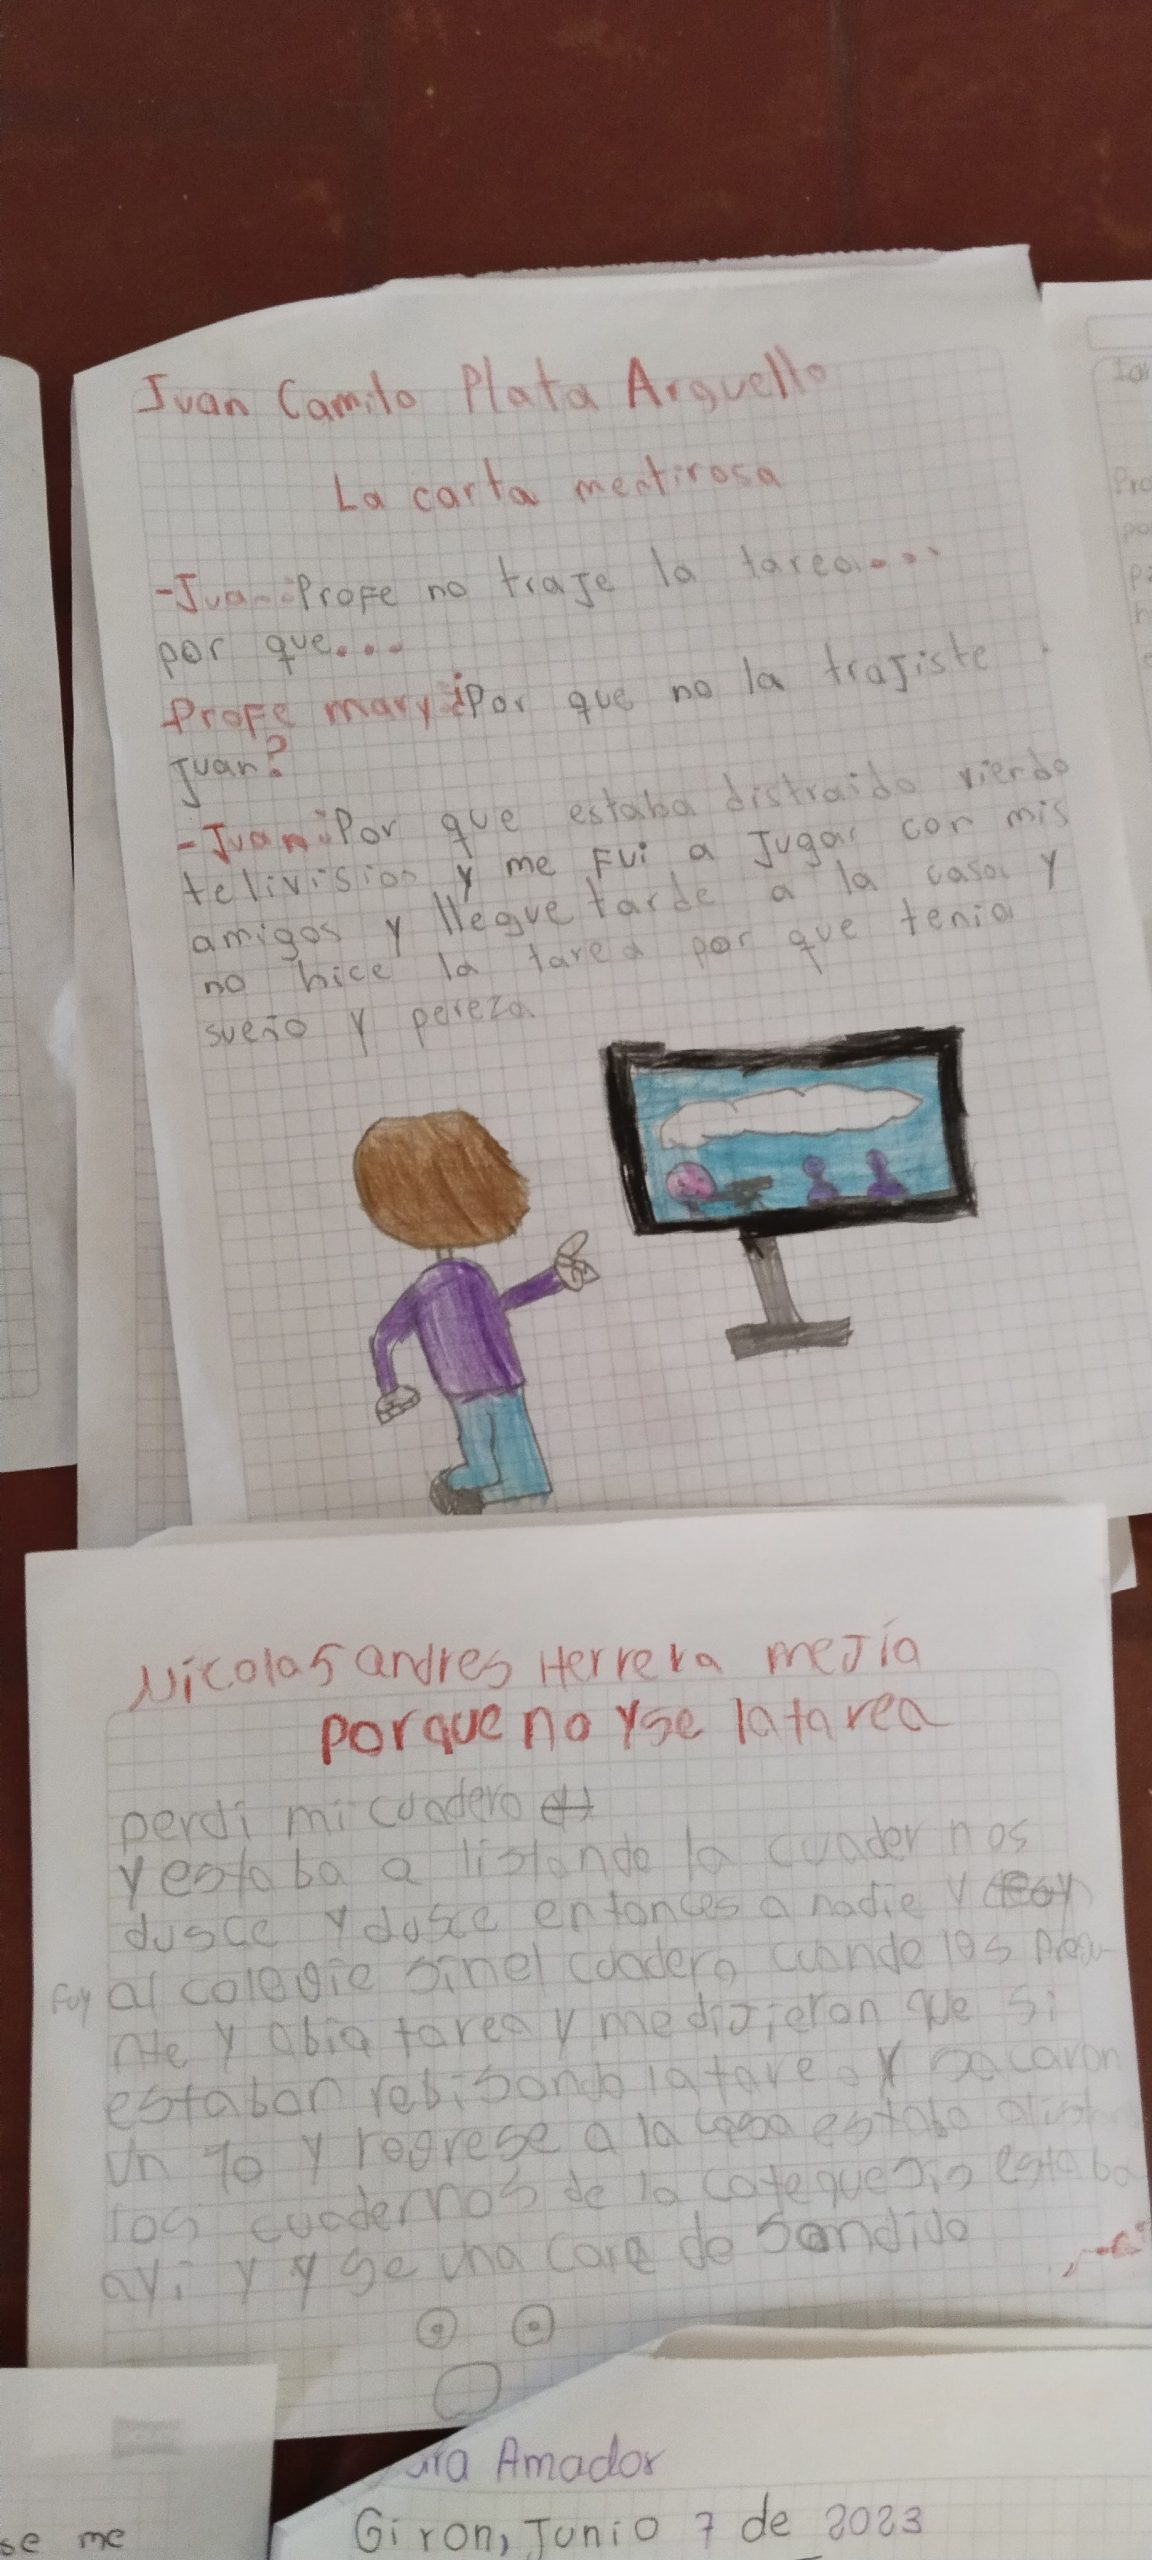 Juan Camilo Plata Arguello
La carta mentirosa
-Juan: Profe no traje la tarea....
por que....
Profe mary: ¿Por que no la trajiste
juan?
-Juan: Por que estaba distraido viendo
telivision y me fui a jugar con mis
amigos y llegue tarde a la casa y
no hice la tarea por que tenia
sueño y pereza
Nicolas andres Herrera mejía
porque no yse la tarea
perdi mi cuadero
y estaba a listando la cuader nos
dusce y dusce entonces a nadie y
Fuy al colegie sinel cuadero cuande les pregu-
nte y abia tarea y medijieron que si
estaban rebisando la tarea y sacaron
un 10 y regrese a la casa estaba
los cuadernos de la catequesis estaba
ayi y y yse una cara de sondido
Amador
Giron, Junio 7 de 2023
se me